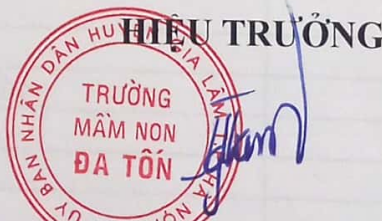 HIỆU TRƯỞNG
ỦY BAN NHÂN DÂN HUYỆN GIA LÂM T.P HÀ NỘI
TRƯỜNG
MẦM NON
ĐA TỐN